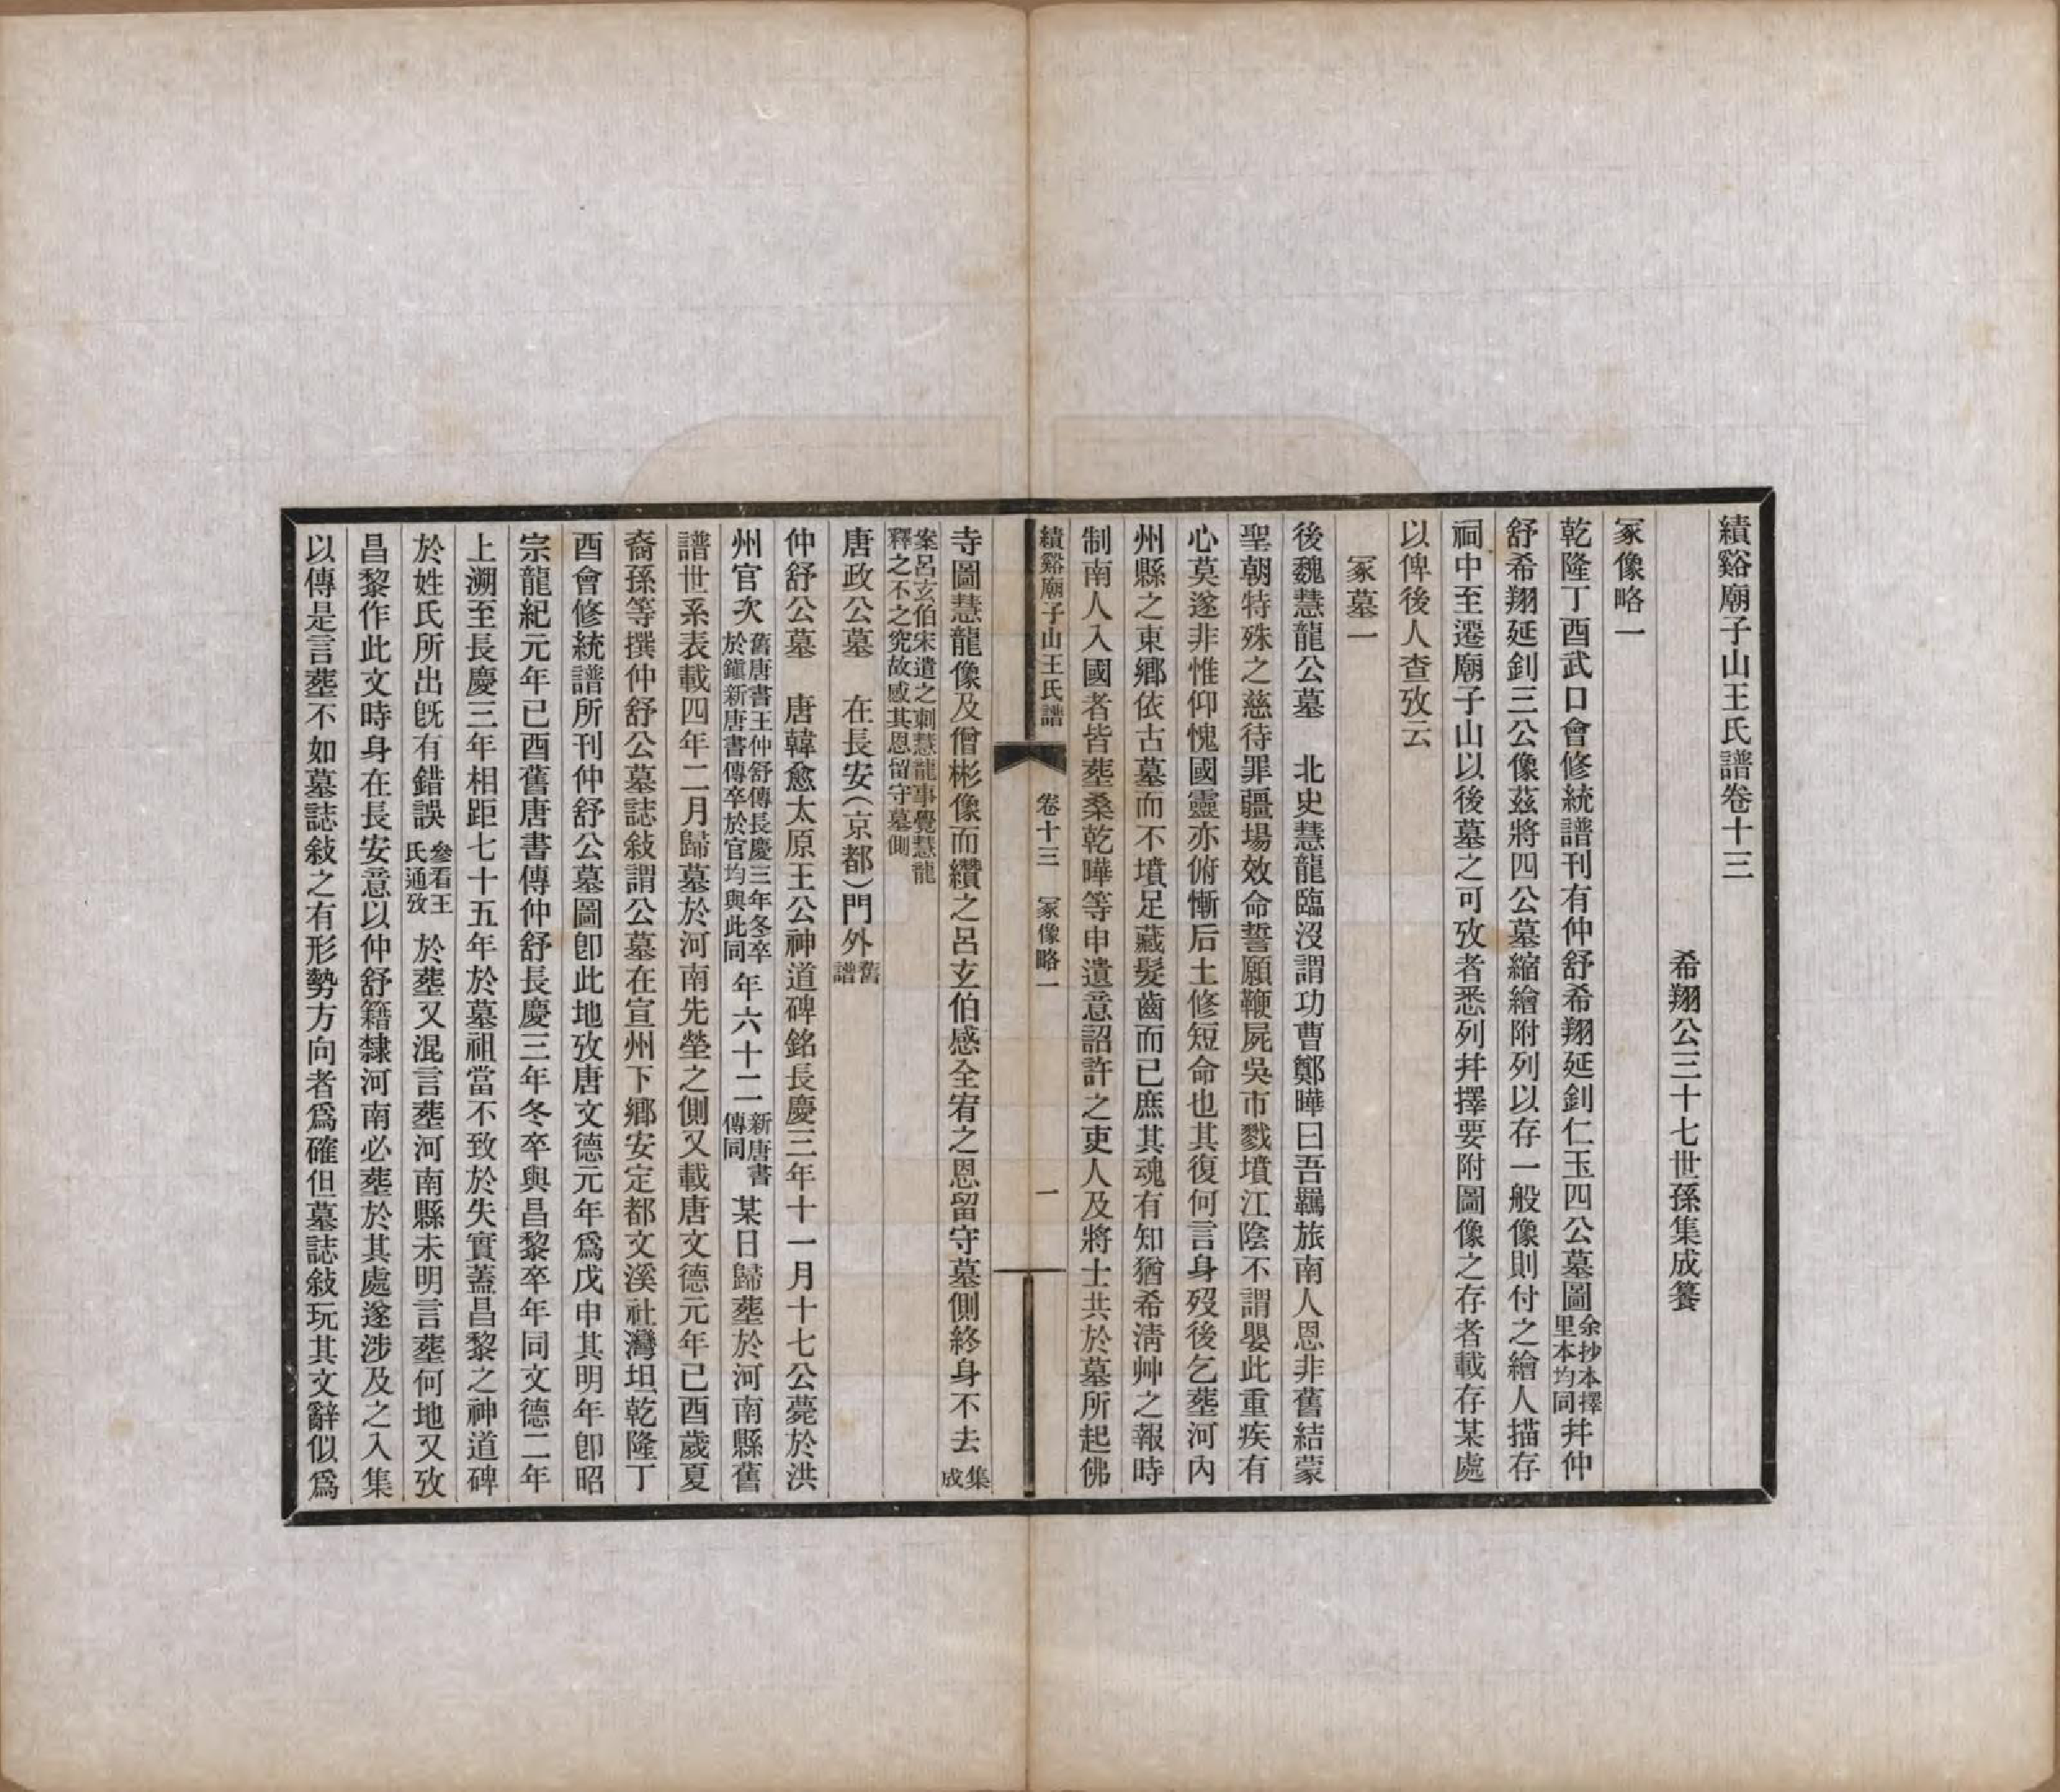 績谿廟子山王氏譜卷十三
希翔公三十七世孫集成纂
冢像略一
乾隆丁酉武口會修統譜刊有仲舒希翔延釗仁玉四公墓圖余抄本擇里本均同幷仲
舒希翔延釗三公像茲將四公墓縮繪附列以存一般像則付之繪人描存
祠中至遷廟子山以後墓之可攷者悉列幷擇要附圖像之存者載存某處
以俾後人查攷云
冢墓一
後魏慧龍公墓 北史慧龍臨沒謂功曹鄭曄曰吾羈旅南人恩非舊結蒙
聖朝特殊之慈待罪疆場效命誓願鞭屍吳市戮墳江陰不謂嬰此重疾有
心莫遂非惟仰愧國靈亦俯慚后土修短命也其復何言身歿後乞葬河內
州縣之東鄉依古墓而不墳足藏髮齒而已庶其魂有知猶希淸艸之報時
制南人入國者皆葬桑乾曄等申遺意詔許之吏人及將士共於墓所起佛
績谿廟子山王氏譜 卷十三 冢像略一 一
寺圖慧龍像及僧彬像而纘之呂玄伯感全宥之恩留守墓側終身不去集成
案呂玄伯宋遣之刺慧龍事覺慧龍釋之不之究故感其恩留守墓側
唐政公墓 在長安(京都)門外舊譜
仲舒公墓 唐韓愈太原王公神道碑銘長慶三年十一月十七公薨於洪
州官次舊唐書王仲舒傳長慶三年冬卒於鎭新唐書傳卒於官均與此同年六十二新唐書傳同某日歸葬於河南縣舊
譜世系表載四年二月歸墓於河南先塋之側又載唐文德元年已酉歲夏
裔孫等撰仲舒公墓誌敍謂公墓在宣州下鄉安定都文溪社灣坦乾隆丁
酉會修統譜所刊仲舒公墓圖卽此地攷唐文德元年爲戊申其明年卽昭
宗龍紀元年已酉舊唐書傳仲舒長慶三年冬卒與昌黎卒年同文德二年
上溯至長慶三年相距七十五年於墓祖當不致於失實蓋昌黎之神道碑
於姓氏所出旣有錯誤參看王氏通攷於葬又混言葬河南縣未明言葬何地又攷
昌黎作此文時身在長安意以仲舒籍隸河南必葬於其處遂涉及之入集
以傳是言葬不如墓誌敍之有形勢方向者爲確但墓誌敍玩其文辭似爲